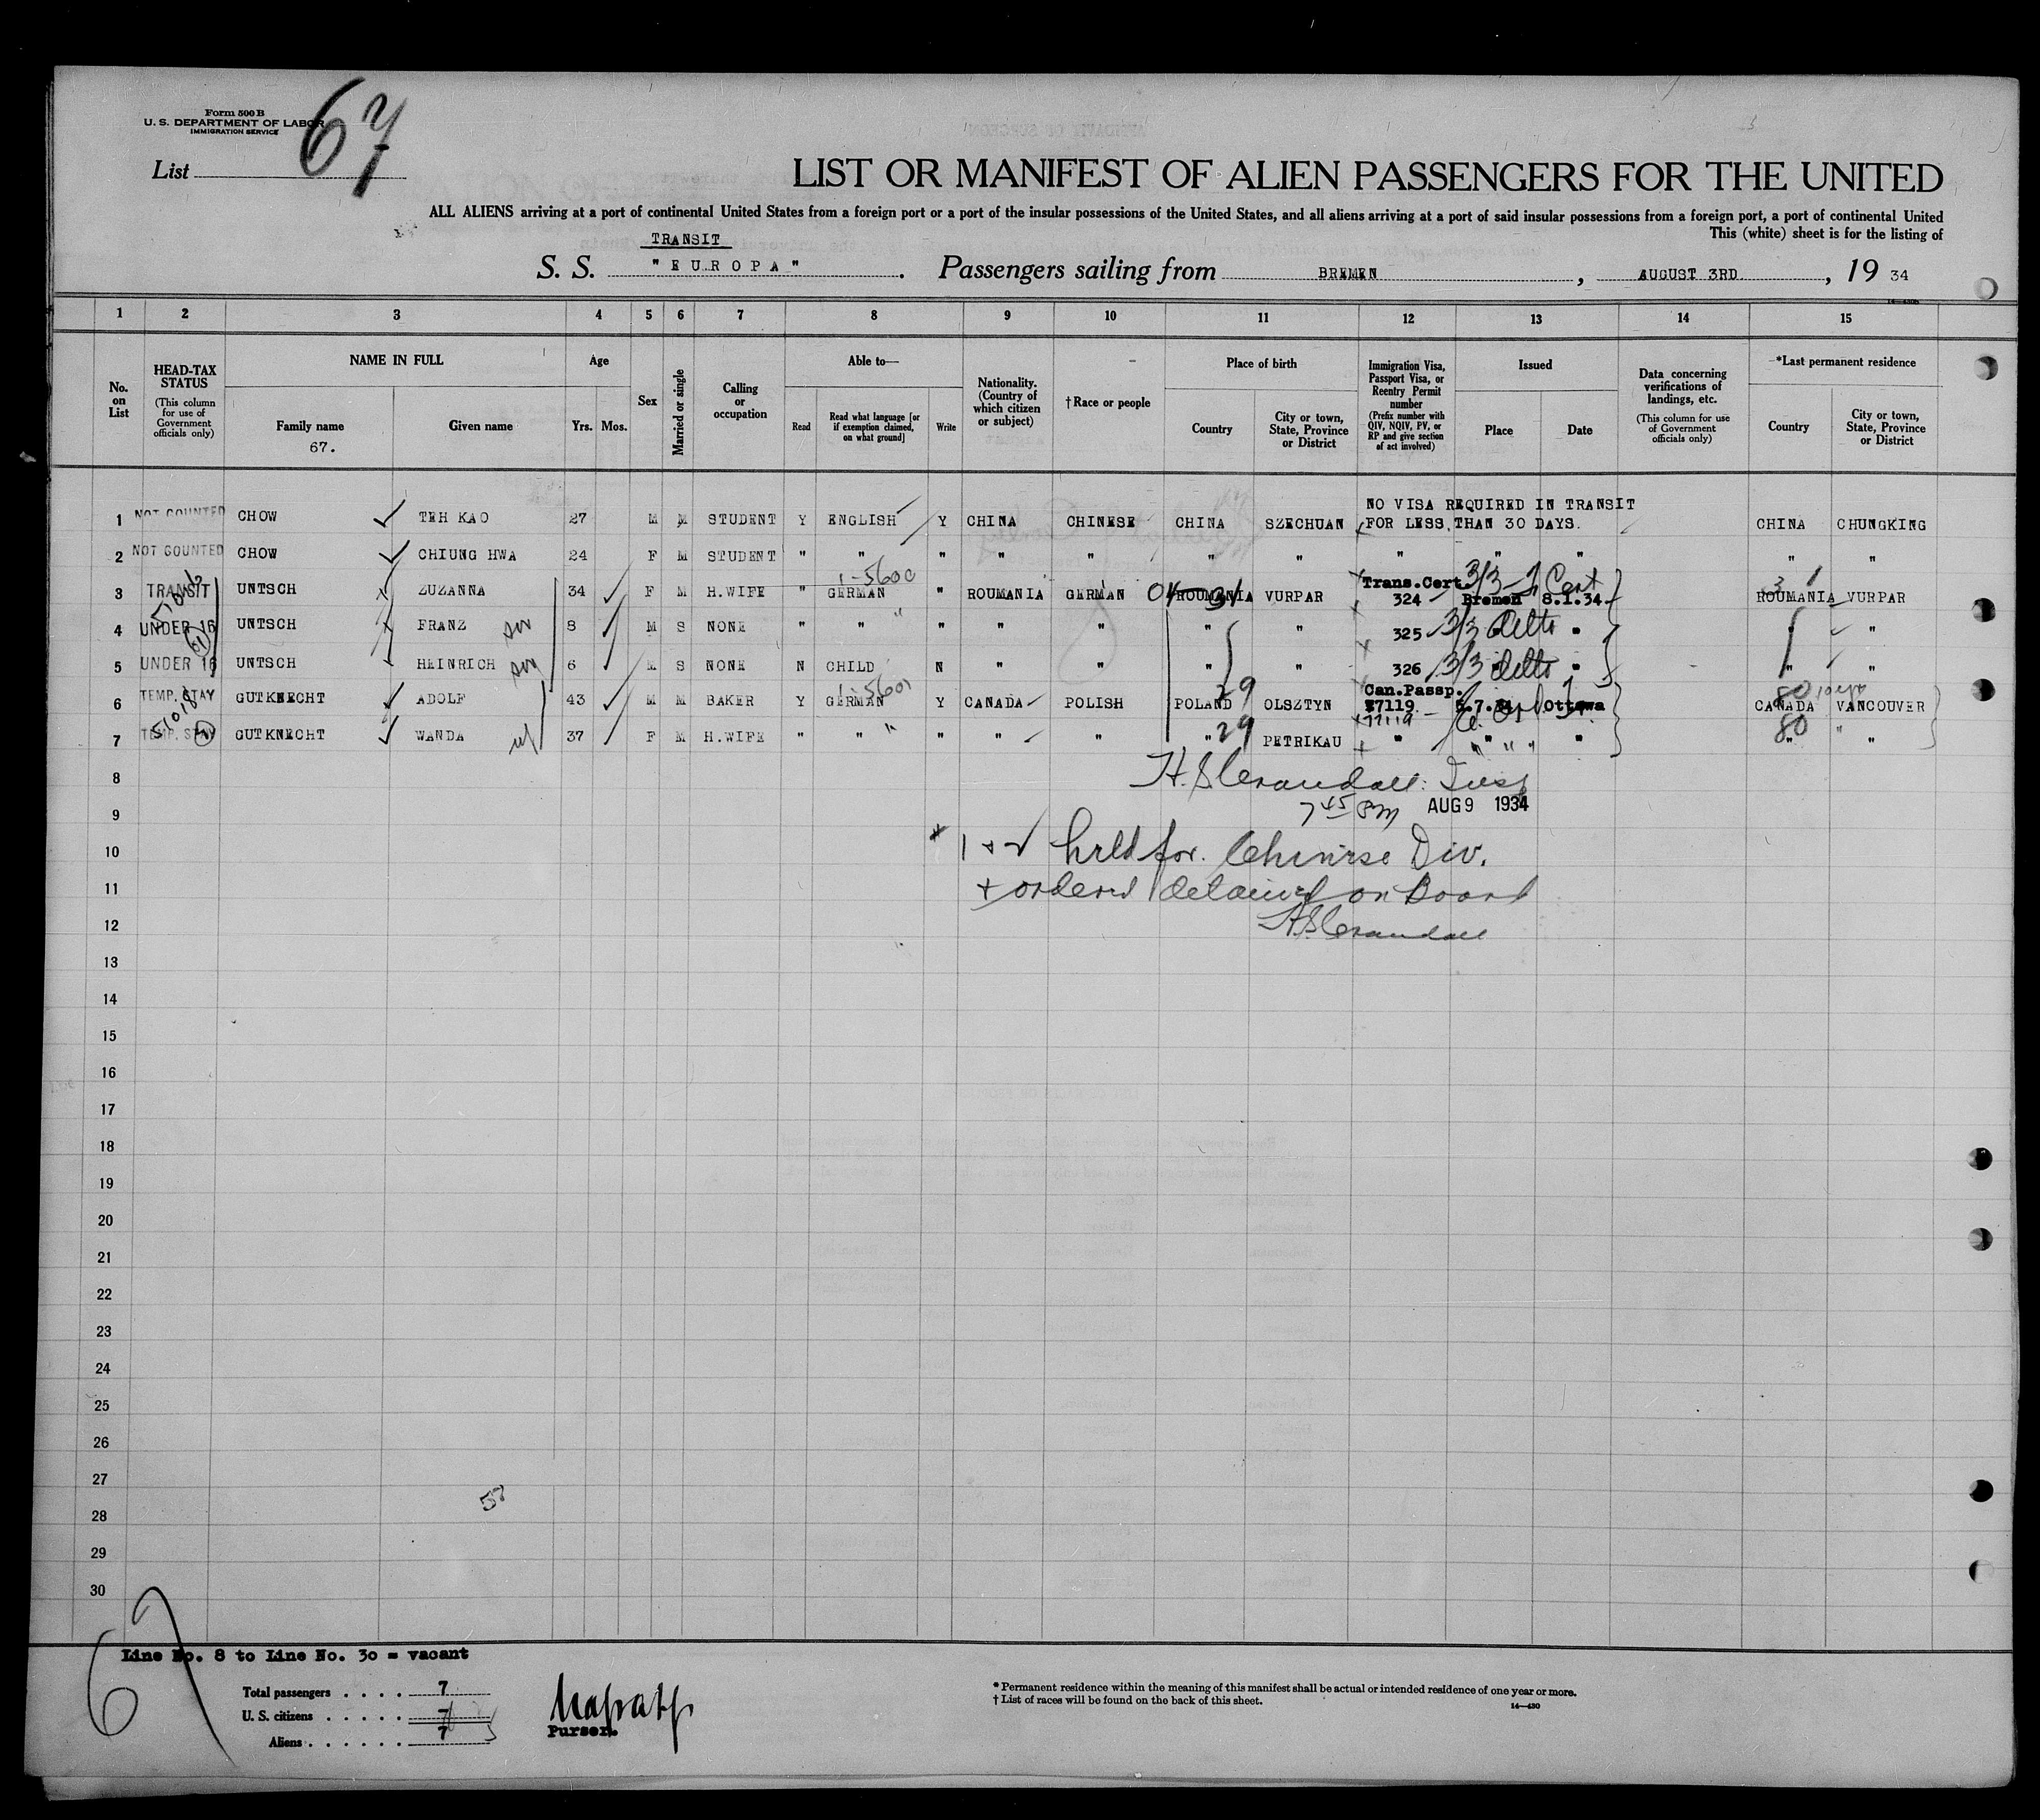 Form 500 B
U. S. DEPARTMENT OF LABOR
IMMIGRATION SERVICE
List 67
LIST OR MANIFEST OF ALIEN PASSENGERS FOR THE UNITED
ALL ALIENS arriving at a port of continental United States from a foreign port or a port of the insular possessions of the United States, and all aliens arriving at a port of said insular possessions from a foreign port, a port of continental United
This (white) sheet is for the listing of
TRANSIT
S. S. "EUROPA". Passengers sailing from BREMEN, AUGUST 3RD, 19 34
1 2 3 4 5 6 7 8 9 10 11 12 13 14 15
No. on List
HEAD-TAX STATUS
(This column for use of Government officials only)
NAME IN FULL
Family name
67.
Given name
Age
Yrs. Mos.
Sex
Married or single
Calling or occupation
Able to—
Read
Read what language [or if exemption claimed, on what ground]
Write
Nationality. (Country of which citizen or subject)
†Race or people
Place of birth
Country
City or town, State, Province or District
Immigration Visa, Passport Visa, or Reentry Permit number
(Prefix number with QIV, NQIV, PV, or RP and give section of act involved)
Issued
Place
Date
Data concerning verifications of landings, etc.
(This column for use of Government officials only)
*Last permanent residence
Country
City or town, State, Province or District
1 NOT COUNTED CHOW TEH KAO 27 M M STUDENT Y ENGLISH Y CHINA CHINESE CHINA SZECHUAN NO VISA REQUIRED IN TRANSIT FOR LESS THAN 30 DAYS. CHINA CHUNGKING
2 NOT COUNTED CHOW CHIUNG HWA 24 F M STUDENT " " " " " " " " " " " "
1-5600
3 TRANSIT UNTSCH ZUZANNA 34 F M H.WIFE " GERMAN " ROUMANIA GERMAN ROUMANIA VURPAR Trans.Cert. 324 Bremen 8.1.34. ROUMANIA VURPAR
4 UNDER 16 UNTSCH FRANZ son 8 M S NONE " " " " " " " 325 3/3 ditto " " "
5 UNDER 16 UNTSCH HEINRICH son 6 M S NONE N CHILD N " " " " 326 3/3 ditto " " "
6 TEMP. STAY GUTKNECHT ADOLF 43 M M BAKER Y GERMAN Y CANADA POLISH POLAND 29 OLSZTYN Can.Passp. 77119 Ottawa 80 CANADA VANCOUVER
7 TEMP. STAY GUTKNECHT WANDA wf 37 F M H.WIFE " " " " " " 29 PETRIKAU " " " 80 " "
8 H. S. Crandall: Insp
9 7 45 PM AUG 9 1934
10 * 1 + 2 held for Chinese Div.
11 + ordered detained on Board
12 H. S. Crandall
13
14
15
16
17
18
19
20
21
22
23
24
25
26
27
28
29
30
67
Line No. 8 to Line No. 30 = vacant
Total passengers . . . . 7
U. S. citizens . . . . .
Aliens . . . . . . 7
Purser.
* Permanent residence within the meaning of this manifest shall be actual or intended residence of one year or more.
† List of races will be found on the back of this sheet.
14—430